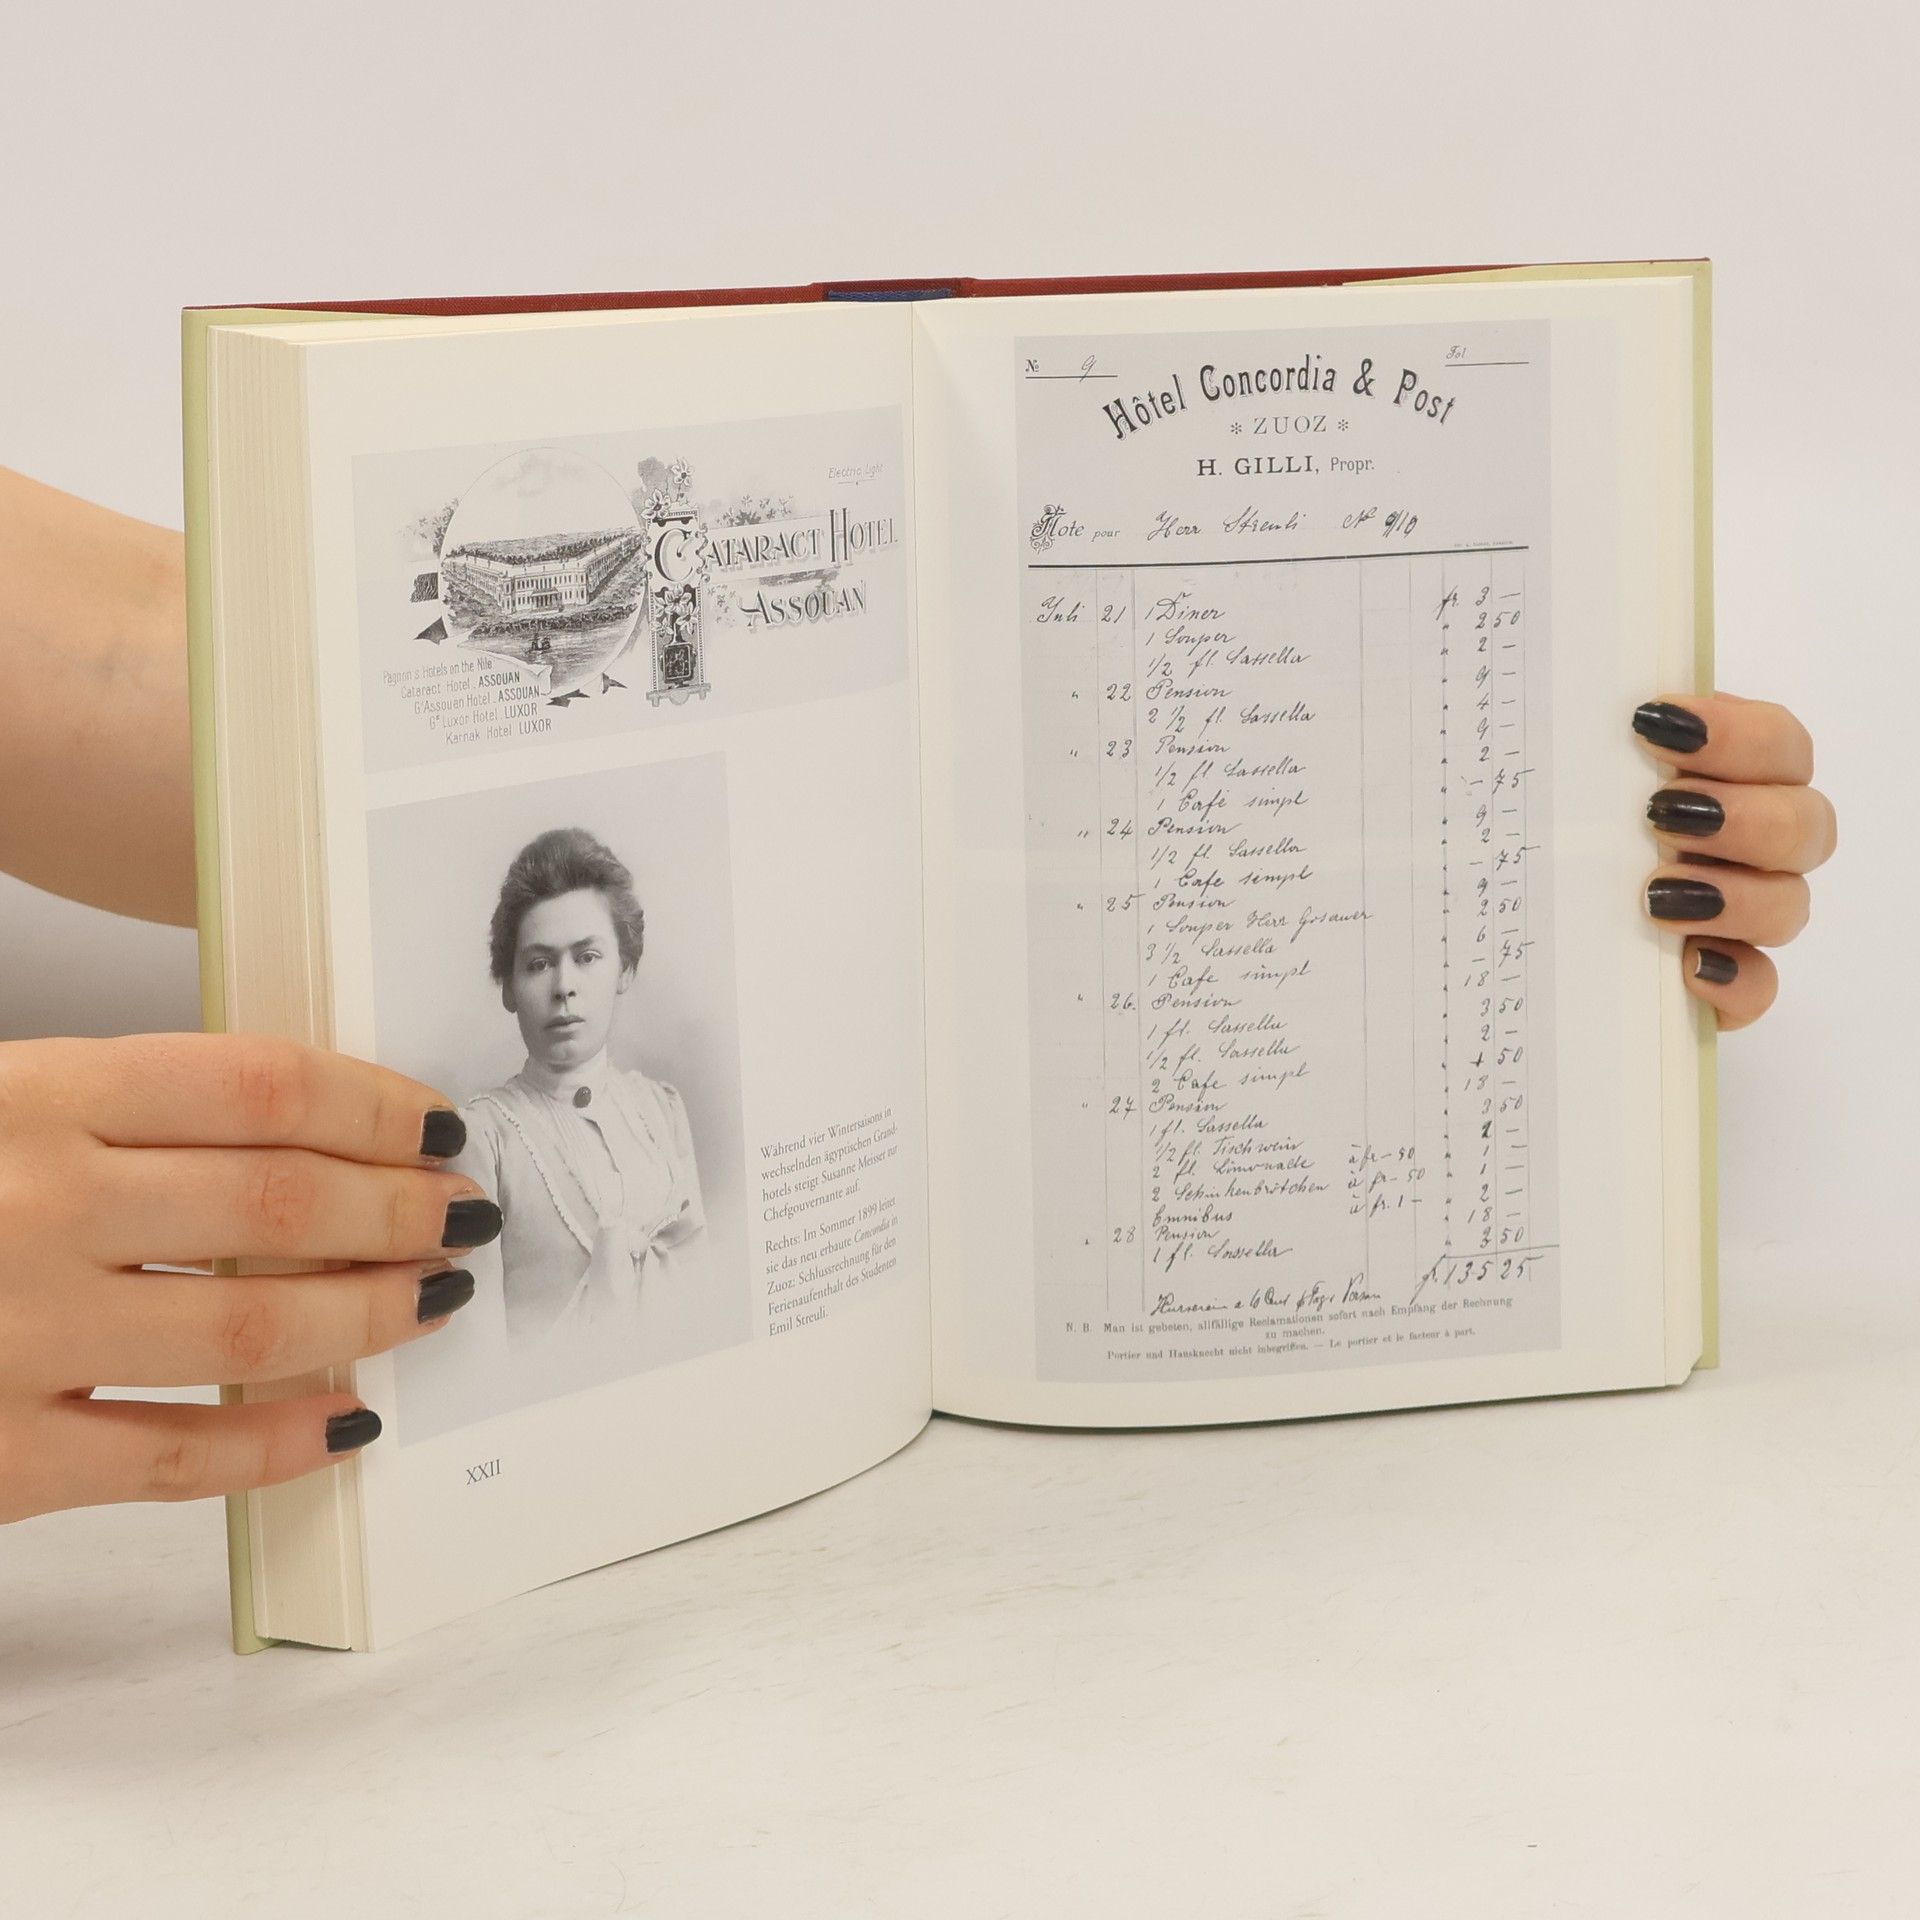 Electric Light
CATARACT HOTEL
ASSOUAN
Pagnon's Hotels on the Nile
Cataract Hotel _ ASSOUAN
Gᵈ Assouan Hotel _ ASSOUAN
Gᵈ Luxor Hotel LUXOR
Karnak Hotel LUXOR
Während vier Wintersaisons in
wechselnden ägyptischen Grand-
hotels steigt Susanne Meisser zur
Chefgouvernante auf.
Rechts: Im Sommer 1899 leitet
sie das neu erbaute Concordia in
Zuoz: Schlussrechnung für den
Ferienaufenthalt des Studenten
Emil Streuli.
XXII
№ 9 Fol
Hôtel Concordia & Post
* ZUOZ *
H. GILLI, Propr.
Note pour Herr Streuli № 9/10
Juli 21 1 Diner fr. 3 —
1 Souper " 2 50
1/2 fl. Sassella " 2 —
" 22 Pension " 9 —
2 1/2 fl. Sassella " 4 —
" 23 Pension " 9 —
1/2 fl Sassella " 2 —
1 Café simpl " — 75
" 24 Pension " 9 —
1/2 fl. Sassella " 2 —
1 Cafe simpl " — 75
" 25 Pension " 9 —
1 Souper Herr " 2 50
3 1/2 Sassella " 6 —
1 Cafe simpl " — 75
" 26. Pension " 18 —
1 fl. Sassella " 3 50
1/2 fl. Sassella " 2 —
2 Cafe simpl " 1 50
" 27 Pension " 18 —
1 fl. Sassella " 3 50
1/2 fl. Tischwein " 1 —
2 fl. Limonade à fr — 50 " 1 —
2 Schinkenbrötchen à fr — 50 " 1 —
Omnibus à fr. 1 — " 2 —
" 28 Pension " 18 —
1 fl. Sassella " 3 50
fr. 135 25
N. B. Man ist gebeten, allfällige Reclamationen sofort nach Empfang der Rechnung
zu machen.
Portier und Hausknecht nicht inbegriffen. — Le portier et le facteur à part.